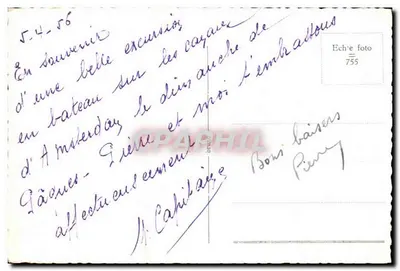 5-4-56
En souvenir
d'une belle excursion
en bateau sur les canaux
d'Amsterdam le dimanche de
Pâques - Pierre et moi t'embrassons
affectueusement
M. Capitaine
Echte foto
755
Bons baisers
Pierre
CPAPHIL